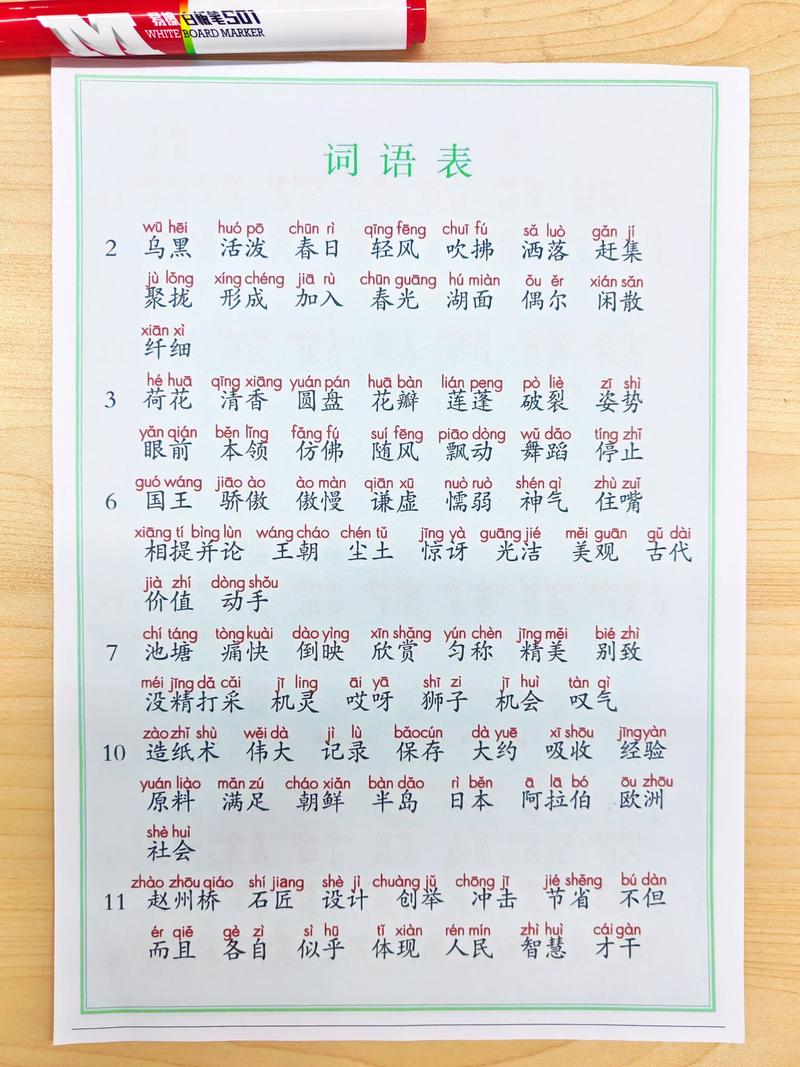 易擦 白板笔501
M WHITE BOARD MARKER
词语表
wū hēi huó pō chūn rì qīng fēng chuī fú sǎ luò gǎn jí
2 乌黑 活泼 春日 轻风 吹拂 洒落 赶集
jù lǒng xíng chéng jiā rù chūn guāng hú miàn ǒu ěr xián sǎn
聚拢 形成 加入 春光 湖面 偶尔 闲散
xiān xì
纤细
hé huā qīng xiāng yuán pán huā bàn lián peng pò liè zī shì
3 荷花 清香 圆盘 花瓣 莲蓬 破裂 姿势
yǎn qián běn lǐng fǎng fú suí fēng piāo dòng wǔ dǎo tíng zhǐ
眼前 本领 仿佛 随风 飘动 舞蹈 停止
guó wáng jiāo ào ào màn qiān xū nuò ruò shén qì zhù zuǐ
6 国王 骄傲 傲慢 谦虚 懦弱 神气 住嘴
xiāng tí bìng lùn wáng cháo chén tǔ jīng yà guāng jié měi guān gǔ dài
相提并论 王朝 尘土 惊讶 光洁 美观 古代
jià zhí dòng shǒu
价值 动手
chí táng tòng kuài dào yìng xīn shǎng yún chèn jīng měi bié zhì
7 池塘 痛快 倒映 欣赏 匀称 精美 别致
méi jīng dǎ cǎi jī ling āi yā shī zi jī huì tàn qì
没精打采 机灵 哎呀 狮子 机会 叹气
zào zhǐ shù wěi dà jì lù bǎo cún dà yuē xī shōu jīng yàn
10 造纸术 伟大 记录 保存 大约 吸收 经验
yuán liào mǎn zú cháo xiǎn bàn dǎo rì běn ā lā bó ōu zhōu
原料 满足 朝鲜 半岛 日本 阿拉伯 欧洲
shè huì
社会
zhào zhōu qiáo shí jiang shè jì chuàng jǔ chōng jī jié shěng bú dàn
11 赵州桥 石匠 设计 创举 冲击 节省 不但
ér qiě gè zì sì hū tǐ xiàn rén mín zhì huì cái gàn
而且 各自 似乎 体现 人民 智慧 才干